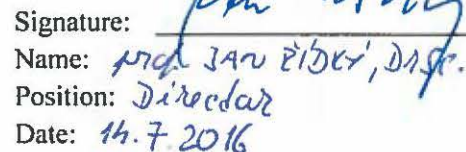 Signature:
Name: prof. JAN ŽÍDKÝ, DrSc.
Position: Director
Date: 14.7.2016